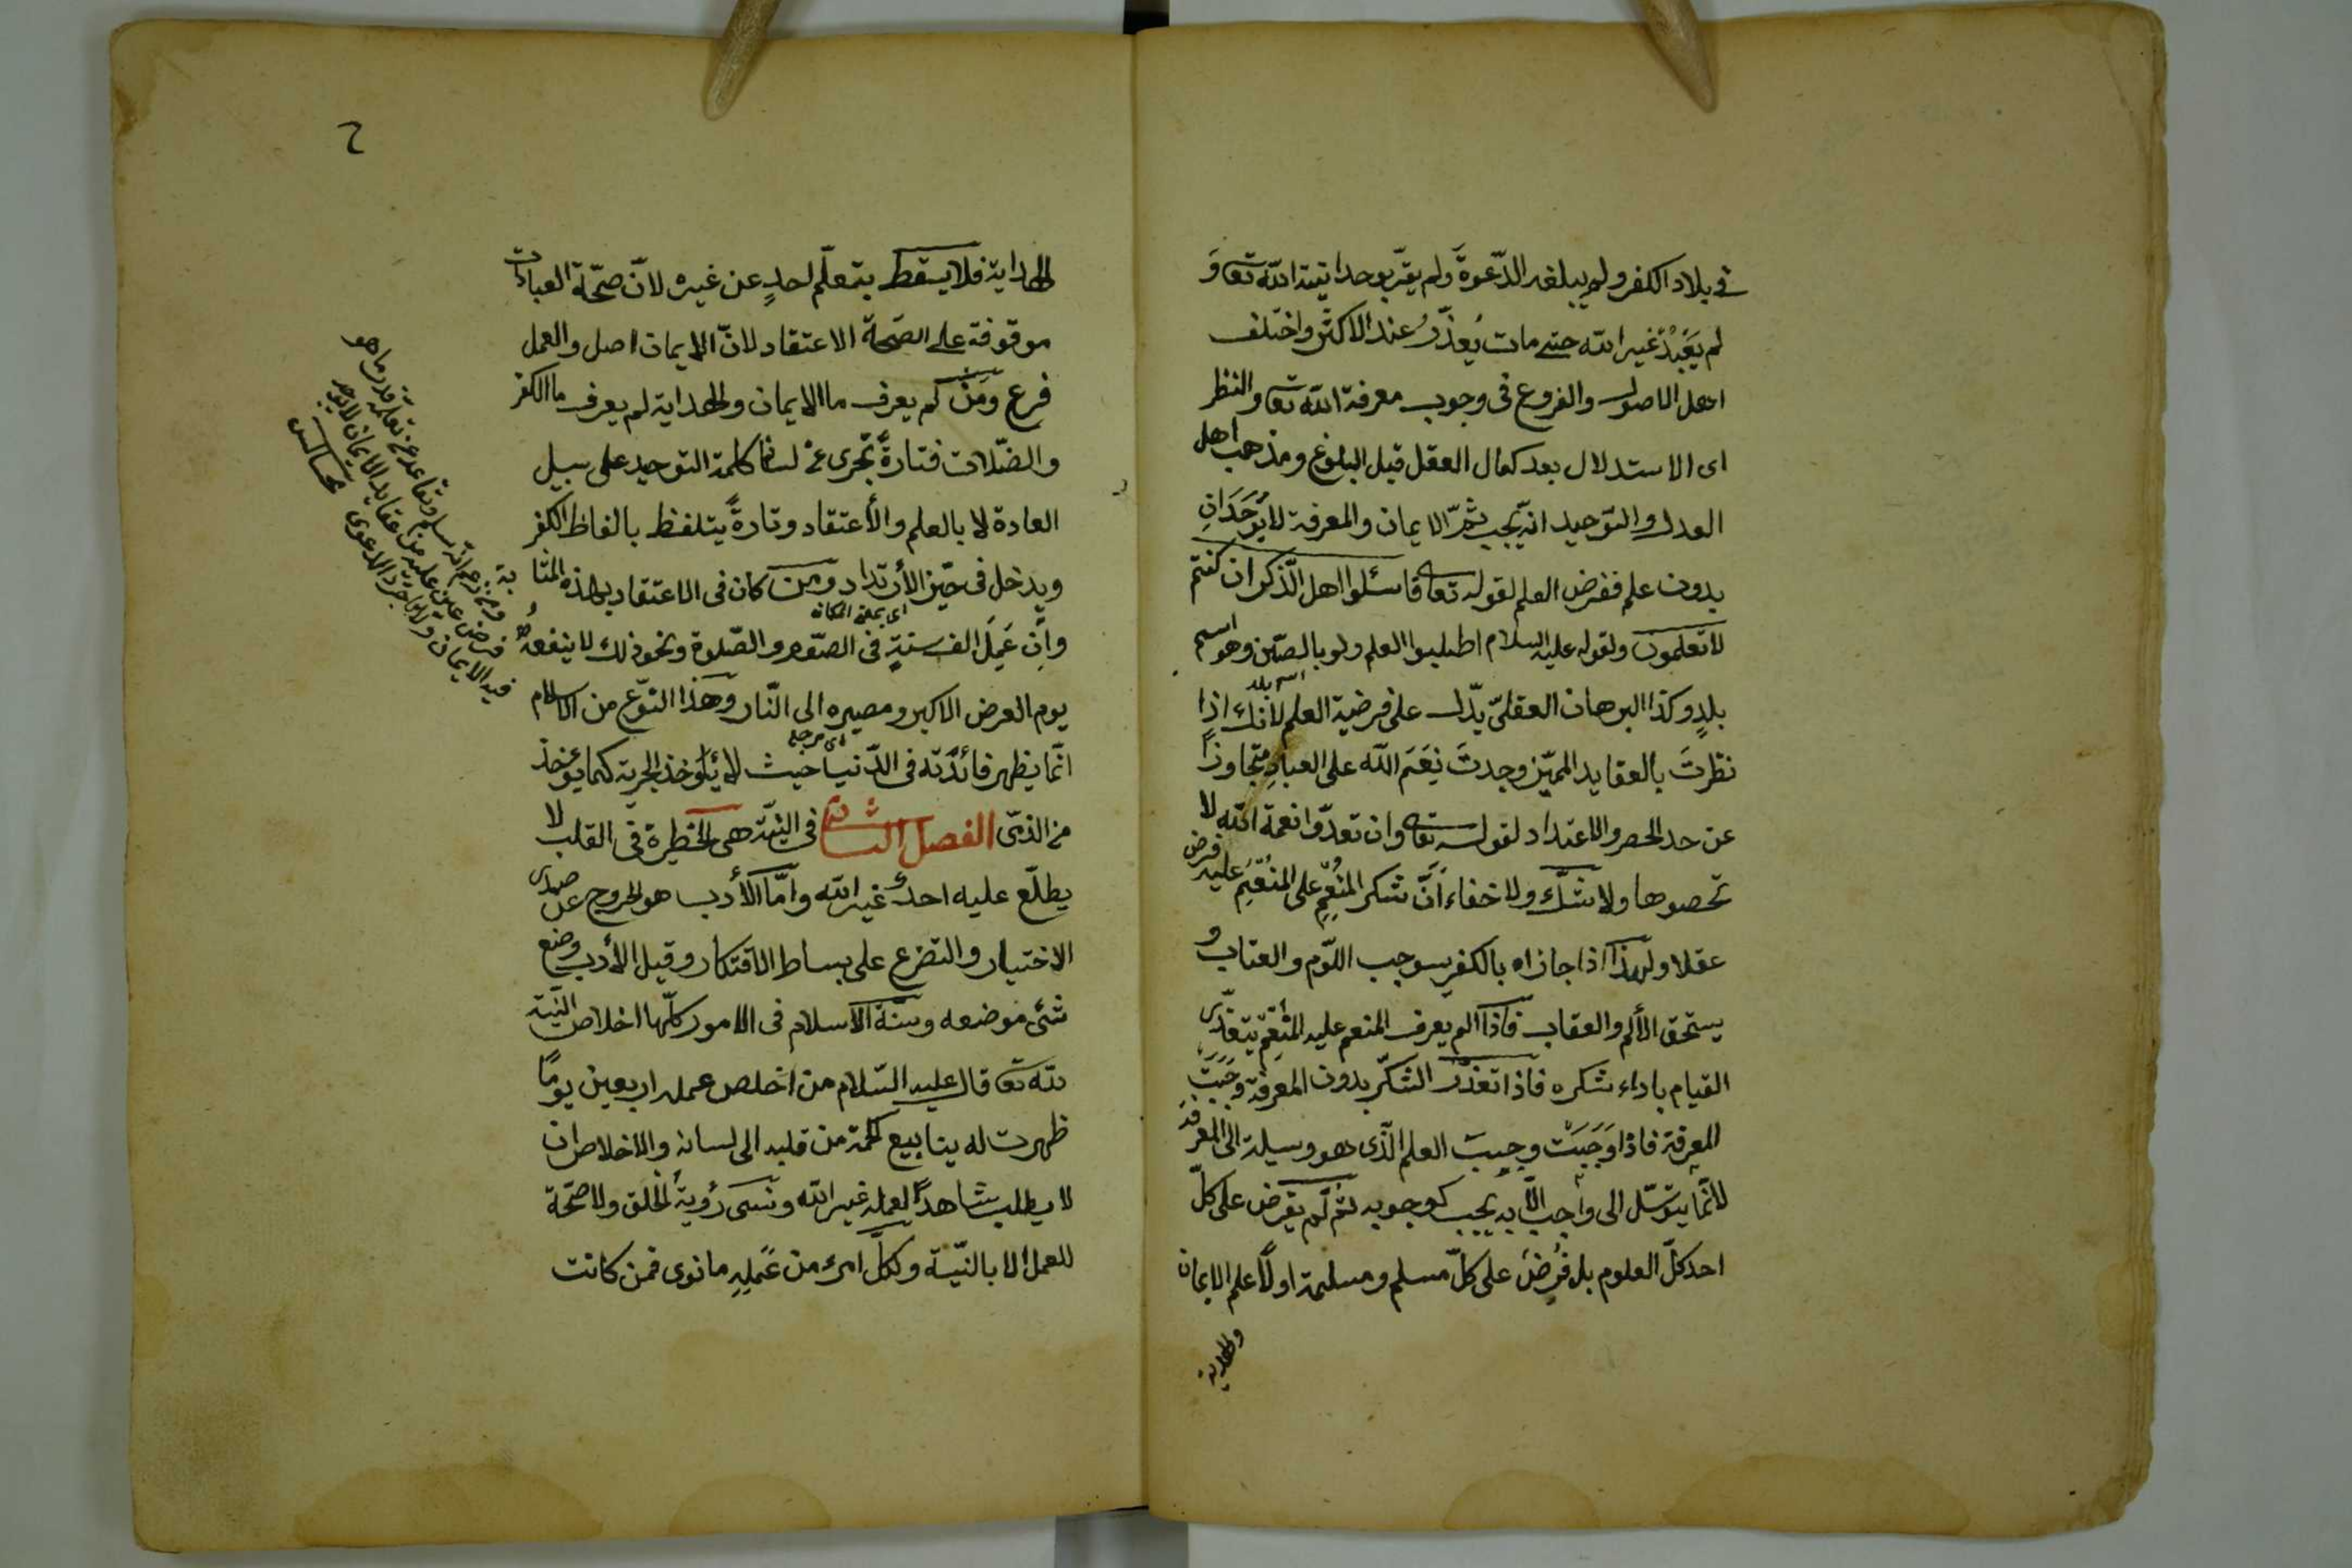 في بلاد الكفر ولم يبلغه الدّعوة ولم يقرّ بوحدانيّة الله تعا وَ
لم يَعْبُدْ غير الله حتى مات يُعذَرُ عند الاكثر واختلف
اهل الاصول والفروع في وجوب معرفة الله تعا والنظر
اى الاستدلال بعد كمال العقل قبل البلوغ ومذهب اهل
العدل والتوحيد انّه يجب ثمّ الايمان والمعرفة لا يُوجَدَانِ
بدون علم ففرض العلم لقوله تعا فاسئلوا اهل الذّكر ان كنتم
لا تعلمون ولقوله عليه السلام اطلبوا العلم ولو بالصّين وهو اسم
اسم بلد
بلدٍ وكذا البرهان العقلىّ يدّل على فرضية العلم لأنك اذا
نظرتَ بالعقايد المميّز وجدتَ نِعَمَ الله على العبادِ متجاوزًا
عن حد الحصر والاعتداد لقوله تعا وان تعدّوا نعمة الله لا
تحصوها ولا شكّ ولا خفاء أنّ شكر المُنْعِمِ على المُنْعَمِ عليه فرض
عقلا ولهذا اذا جازاه بالكفر يسوجب اللّوم والعتاب و
يستحق الألم والعقاب فاذا لم يعرف المنعم عليه المُنْعِمَ يتعذّر
القيام باداء شكره فاذا تعذّر الشكر بدون المعرفة وَجَبَتْ
المعرفة فاذا وَجَبَتْ وجبت العلم الّذى هو وسيلة الى المعرفة
لأنّ ما يتوسّل الى واجب الّا به يجب كوجوبه ثم لم يفرض على كلّ
احد كلّ العلوم بل فُرِضَ على كلّ مسلم ومسلمة اولاً علم الايمان
والهداية
٢
الهداية فلا يسقط بتعلّم احدٍ عن غيره لانّ صحّة العبادات
موقوفة على الصحّة الاعتقاد لانّ الايمان اصل والعمل
فرع ومَنْ لم يعرف ما الايمان والهداية لم يعرف ما الكفر
والضّلات فتارةً تجرى على لسانه كلمة التوحيد على سبيل
العادة لا بالعلم والأعتقاد وتارةً يتلفظ بالفاظ الكفر
ويدخل في حيّز الأرتداد ومن كان في الاعتقاد بهذه المثا
اى بهذه المكانة
وإن عَمِلَ الف سنةٍ في الصّوم والصّلوة ونحو ذلك لا ينفعه
يوم العرض الاكبر ومصيره الى النّار وهذا النوع من الاسلام
انّما يظهر فائدته في الدّنيا حيث لا يُؤخذ الجزية كما يؤخذ
من الذمّى الفصل الثانى في النيّة هى الخطرة في القلب لا
يطلّع عليه احدٌ غير الله وامّا الأدب هو الخروج عن صدى
الاختيار والتضرع على بساط الافتكار وقيل الأدب وضع
شئ موضعه وسنّة الاسلام في الامور كلّها اخلاص النيّة
لله تعا قال عليه السّلام من اخلص عمله اربعين يومًا
ظهرت له ينابيع الحكمة من قلبه الى لسانه والاخلاص ان
لا يطلب شاهدًا لعمله غير الله ونسى رؤية الخلق ولا صحّة
للعمل الا بالنيّة ولكلّ امرئ من عَمَلِهِ ما نوى فمن كانت
ومن زعم انه مسلم وتقاعد عن تعلّم قدر ما هو
فرض عين عليه من عقايد الايمان لا يوجد
فيه الايمان ولا يجرد الدعوى
مجالس